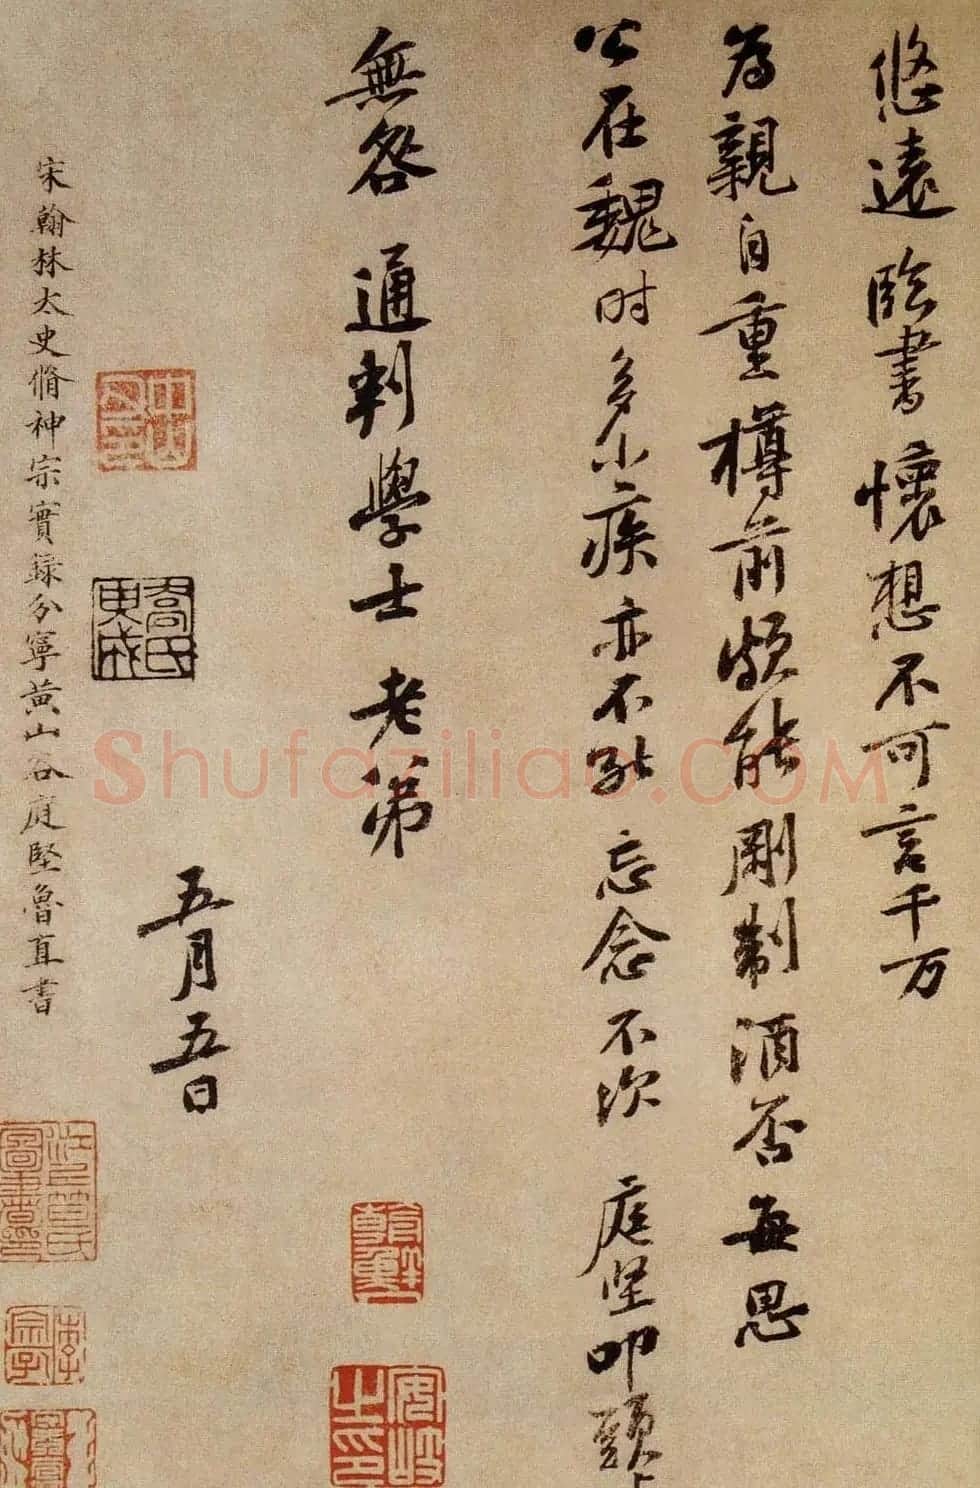 悠遠臨書懷想不可言千万
為親自重樽前頗能剛制酒否每思
公在魏时多小疾亦不能忘念不次庭坚叩頭上
無咎通判學士老弟
五月五日
宋翰林太史脩神宗實録分寧黃山谷庭堅魯直書
Shufaziliao.COM